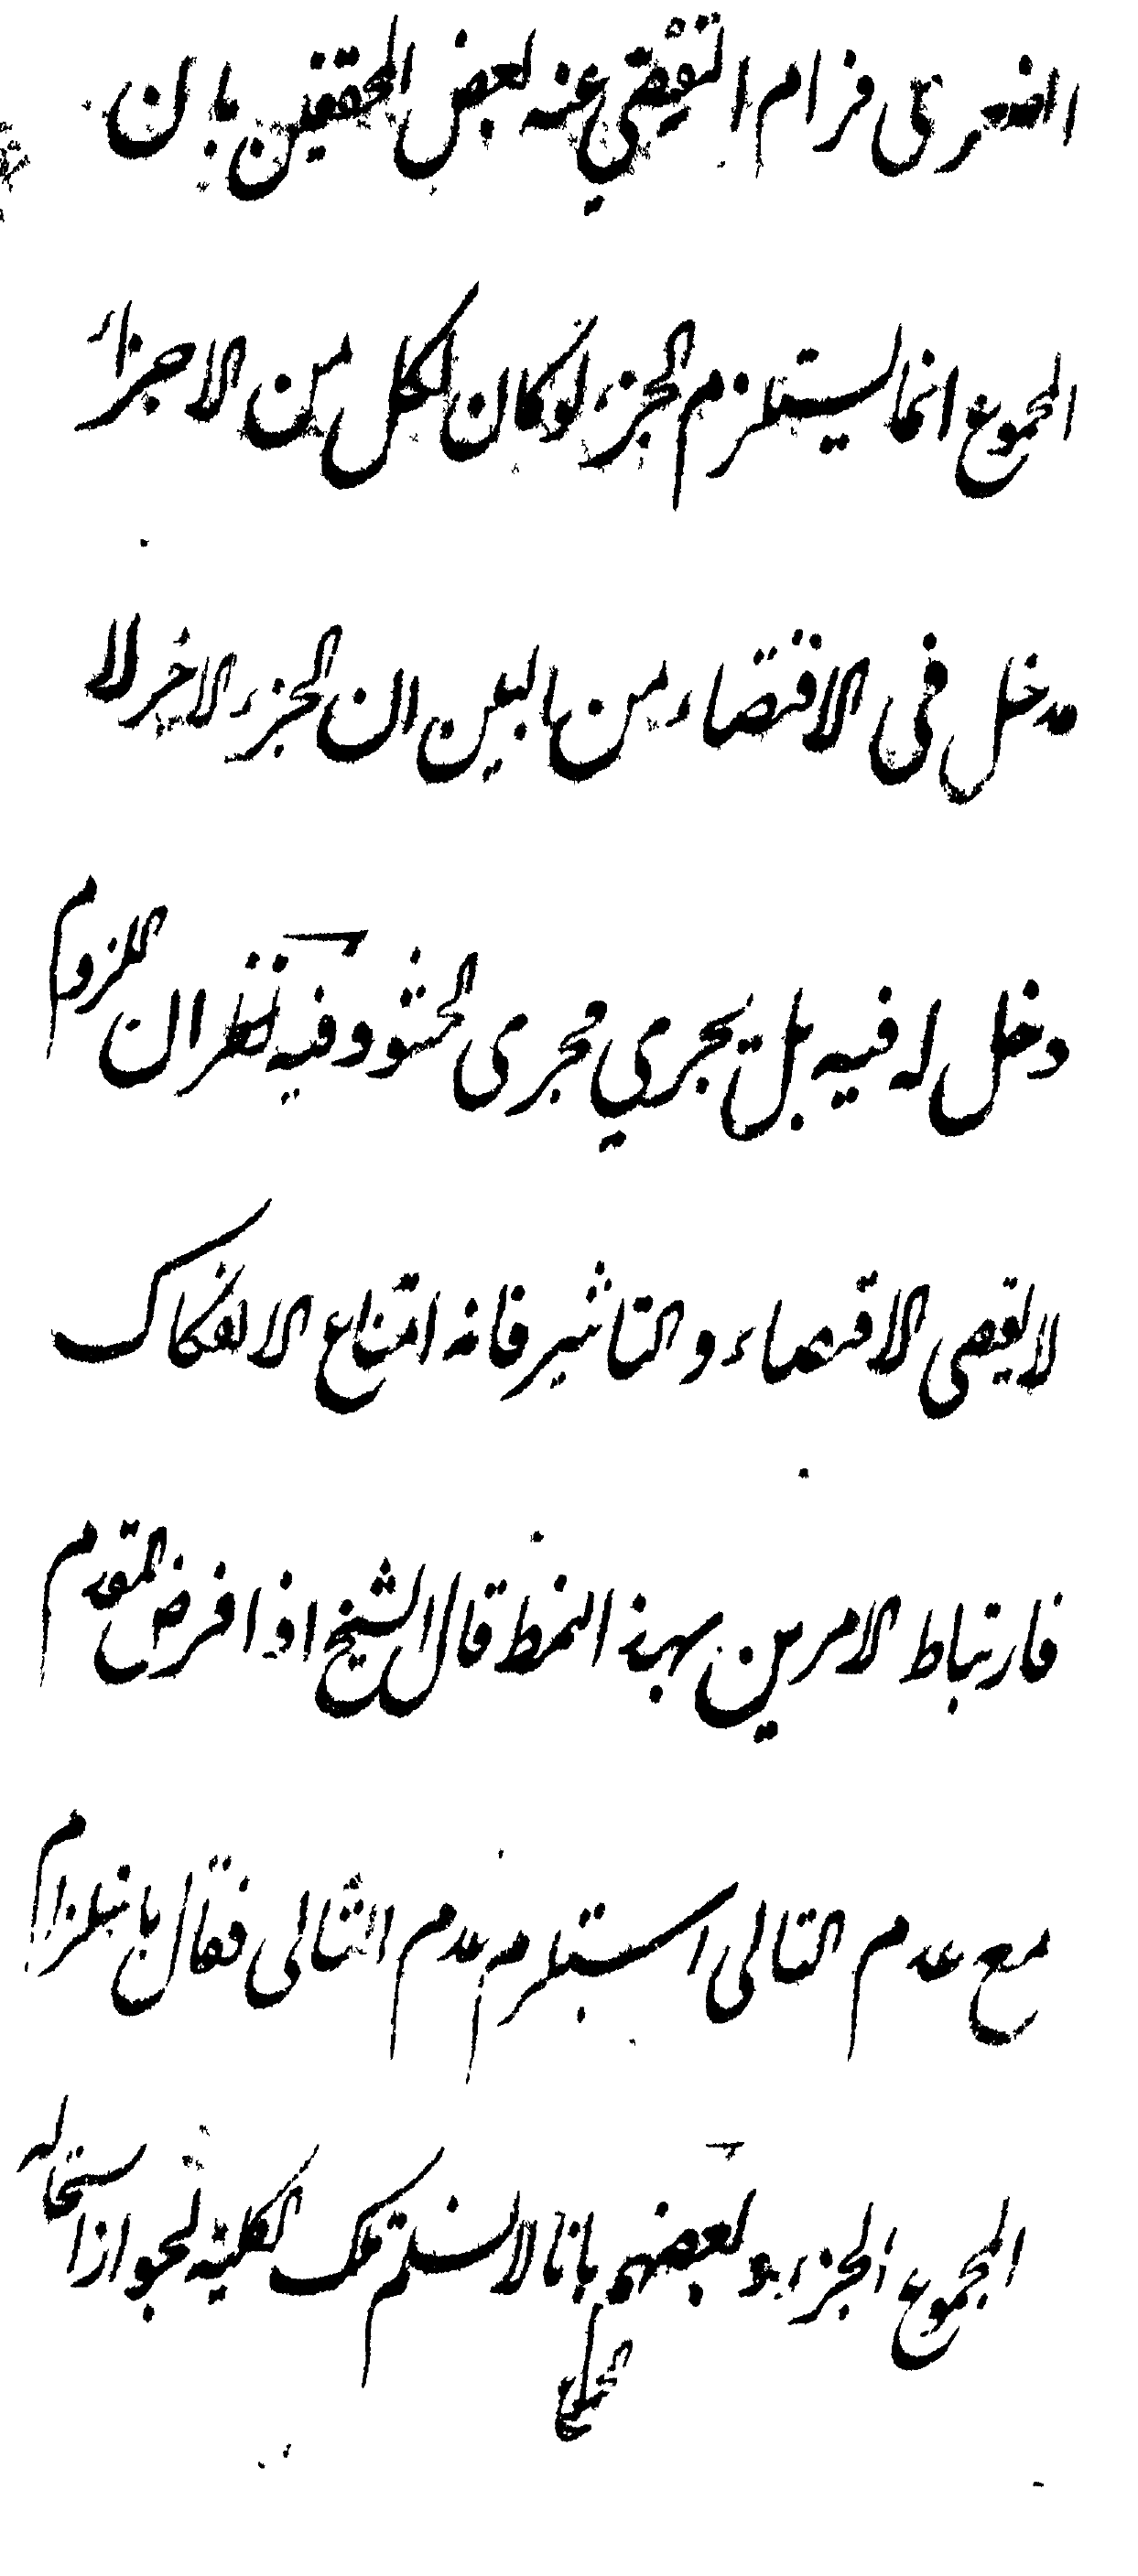 فرام التفصي عنه بعض المحققين بان
المجموع انما يستلزم الجزء لو كان لكل من الاجزاء
مدخل في الاقتضاء من البين ان الجزء الاخر لا
دخل له فيه بل يجري مجرى الحشو وفيه نظر ان اللزوم
لا يقتضى الاقتضاء والتاثير فانه امتناع الانفكاك
فارتباط الامرين بهذا النمط قال الشيخ اذا فرض المقدم
مع عدم التالى استلزم عدم التالى فقال باستلزام
المجموع الجزء وبعضهم بانا لا نسلم تلك الكلية لجواز استحالة